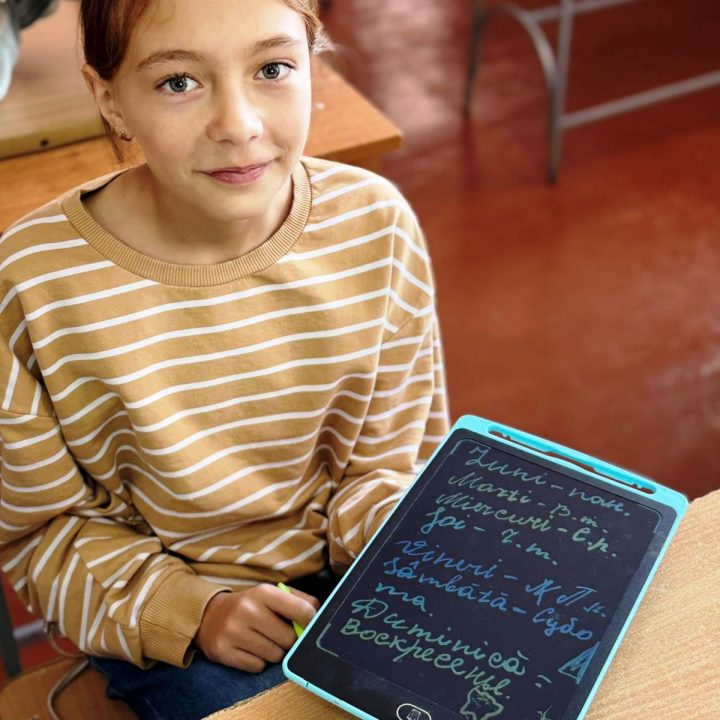 Luni - пон.
Marți - В.т.
Mircuri - С.р.
Joi - ч.т.
Vineri -
Sâmbătă - Субо
та
Duminică =
воскресенье.